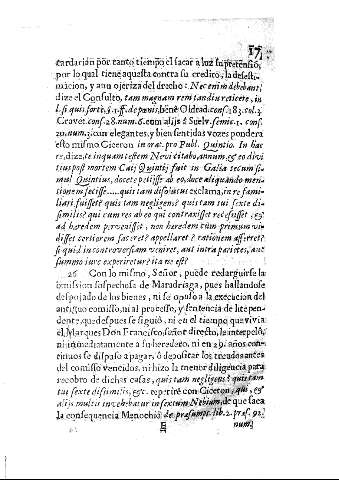 17.
tardacion por tanto tiempo el sacar a luz su pretensió,
por lo qual tiene aquesta contra su credito, la desesti-
macion, y aun ojeriza del drecho: Nec enim debebant,
dize el Consulto, tam magnam rem tandiu reticere, in
l. si quis forte, §. 1. ff. de pœnis, bene Oldrad. cons. 183. col. 3.
Cravet. cons. 28. num. 6. cum alijs à Suelv. semic. 1. cons.
20. num. 3. con elegantes, y bien sentidas vozes pondera
esto mismo Ciceron, in orat. pro Publ. Quintio. In hac
re, dize, te inquam testem Nevi citabo, annum, & eo diu
tius post mortem Caij Quintij fuit in Galia tecum si-
mul Quintius, doce te petijsse ab eo, doce aliquando men-
tionem fecisse..... quis tam disolutus exclama, in re fami-
liari fuisset? quis tam negligens? quis tam sui sexte di-
similis? qui cum res ab eo qui contraxisset recessisset, &
ad heredem pervenisset, non heredem cum primum vi-
disset certiorem faceret? appellaret? rationem afferret?
si quid in controversiam veniret, aut intra parietes, aut
summo iure experiretur? ita ne est?
26 Con lo mismo, Señor, puede redarguirse la
omission sospechosa de Maradriaga, pues hallandose
despojado de los bienes, ni se opuso a la execucion del
antiguo comisso, ni al processo, y sentencia de litepen-
dente, que despues se siguiò, ni en el tiempo que vivia
el Marques Don Francisco, señor directo, la interpelò,
ni inmediatamente a su heredero, ni en 29. años con-
tinuos se dispuso a pagar, ò depositar los treudos antes
del comisso vencidos, ni hizo la menor diligencia para
recobro de dichas casas, quis tam negligens? quis tam
sui sexte disimilis, &c. repetirè con Ciceron, que, &
alijs multis invehebatur in sextum Nebium, de que saca
la consequencia Menochio de præsumpt. lib. 2. præs. 92.
E
num.